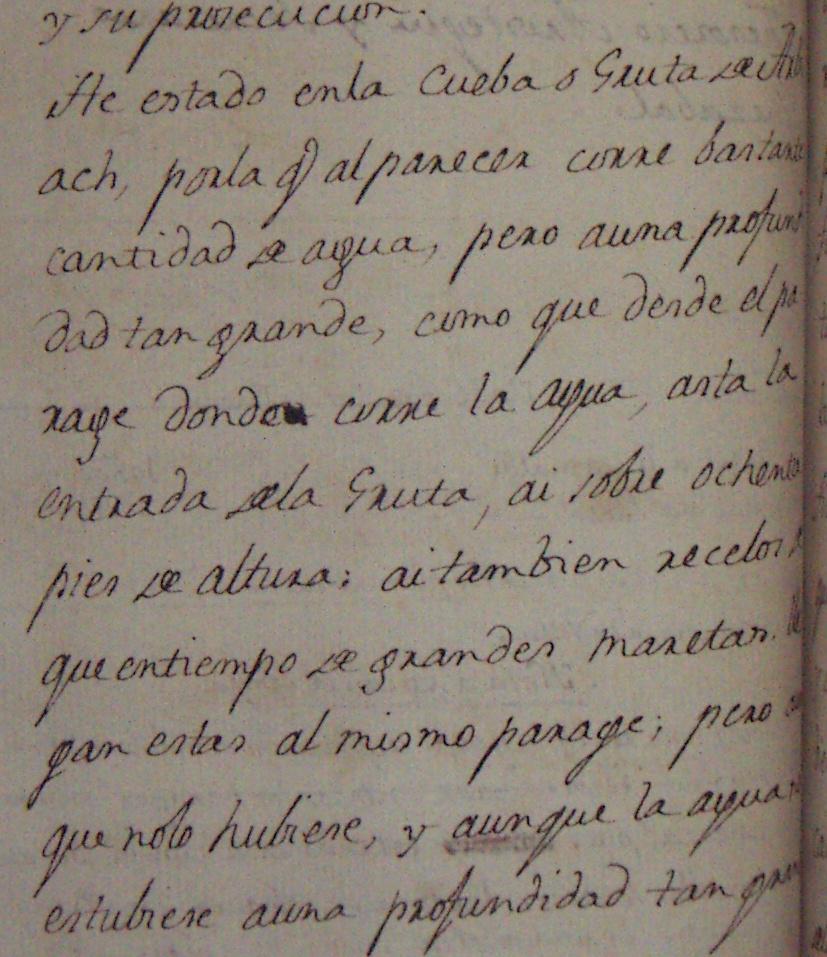 y su prosecucion.
He estado enla Cueba o Gruta de
ach, porla q.e al parecer corre bastante
cantidad de agua, pero auna profun
dad tan grande, como que desde el pa
rage donde corre la agua, asta la
entrada dela Gruta, ai sobre ochenta
pies de altura; ai tambien recelos
que entiempo de grandes maretas.
gan estas al mismo parage; pero
que nolo hubiese, y aunque la agua
estubiese auna profundidad tan gran